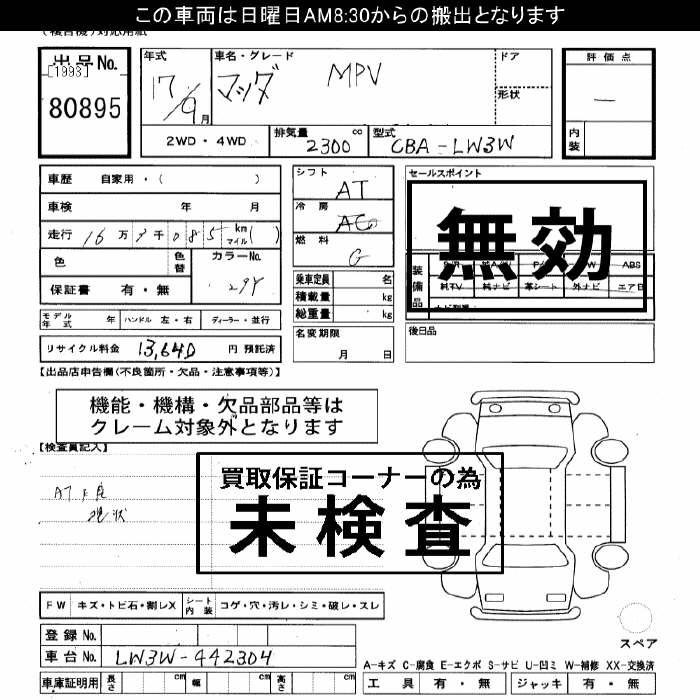 この車両は日曜日AM8:30からの搬出となります
出品No.
[1993]
80895
年式
17/9月
車名・グレード
マツダ MPV
ドア
形状
2WD・4WD
排気量 2300 cc
型式 CBA-LW3W
評価点
内装
車歴 自家用・( )
車検 年 月
走行 16万 7千085 km マイル( )
色
色替
カラーNo.
29Y
保証書 有・無
モデル年式 年 ハンドル 左・右 ディーラー・並行
リサイクル料金 13,640 円 預託済
シフト AT
冷房 AC
燃料 G
乗車定員 名
積載量 kg
総重量 kg
名変期限
月 日
セールスポイント
無効
装備品
S/R P/S P/W ABS
純TV 純ナビ 革シート 外ナビ エアB
後日品
【出品店申告欄(不良箇所・欠品・注意事項等)】
機能・機構・欠品部品等は
クレーム対象外となります
【検査員記入】
AT不良
現状
買取保証コーナーの為
未検査
FW キズ・トビ石・割レX シート内装 コゲ・穴・汚レ・シミ・破レ・スレ
登録No.
車台No. LW3W-442304
車庫証明用 長さ cm 幅 cm 高さ cm
スペア
A-キズ C-腐食 E-エクボ S-サビ U-凹ミ W-補修 XX-交換済
工具 有・無 ジャッキ 有・無